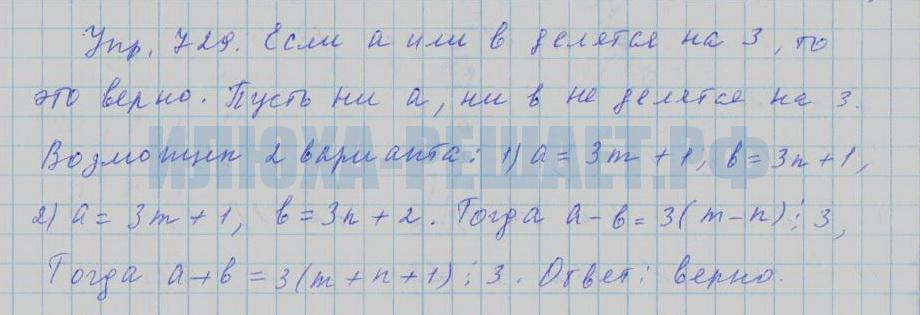 Упр. 729. Если а или в делятся на 3, то
это верно. Пусть ни а, ни в не делятся на 3.
ИЛЮХА-РЕШАЕТ.РФ
Возможны 2 варианта: 1) а = 3m + 1; в = 3n + 1,
2) а = 3m + 1, в = 3n + 2. Тогда а - в = 3(m - n) ⋮ 3,
Тогда а + в = 3(m + n + 1) ⋮ 3. Ответ: верно.